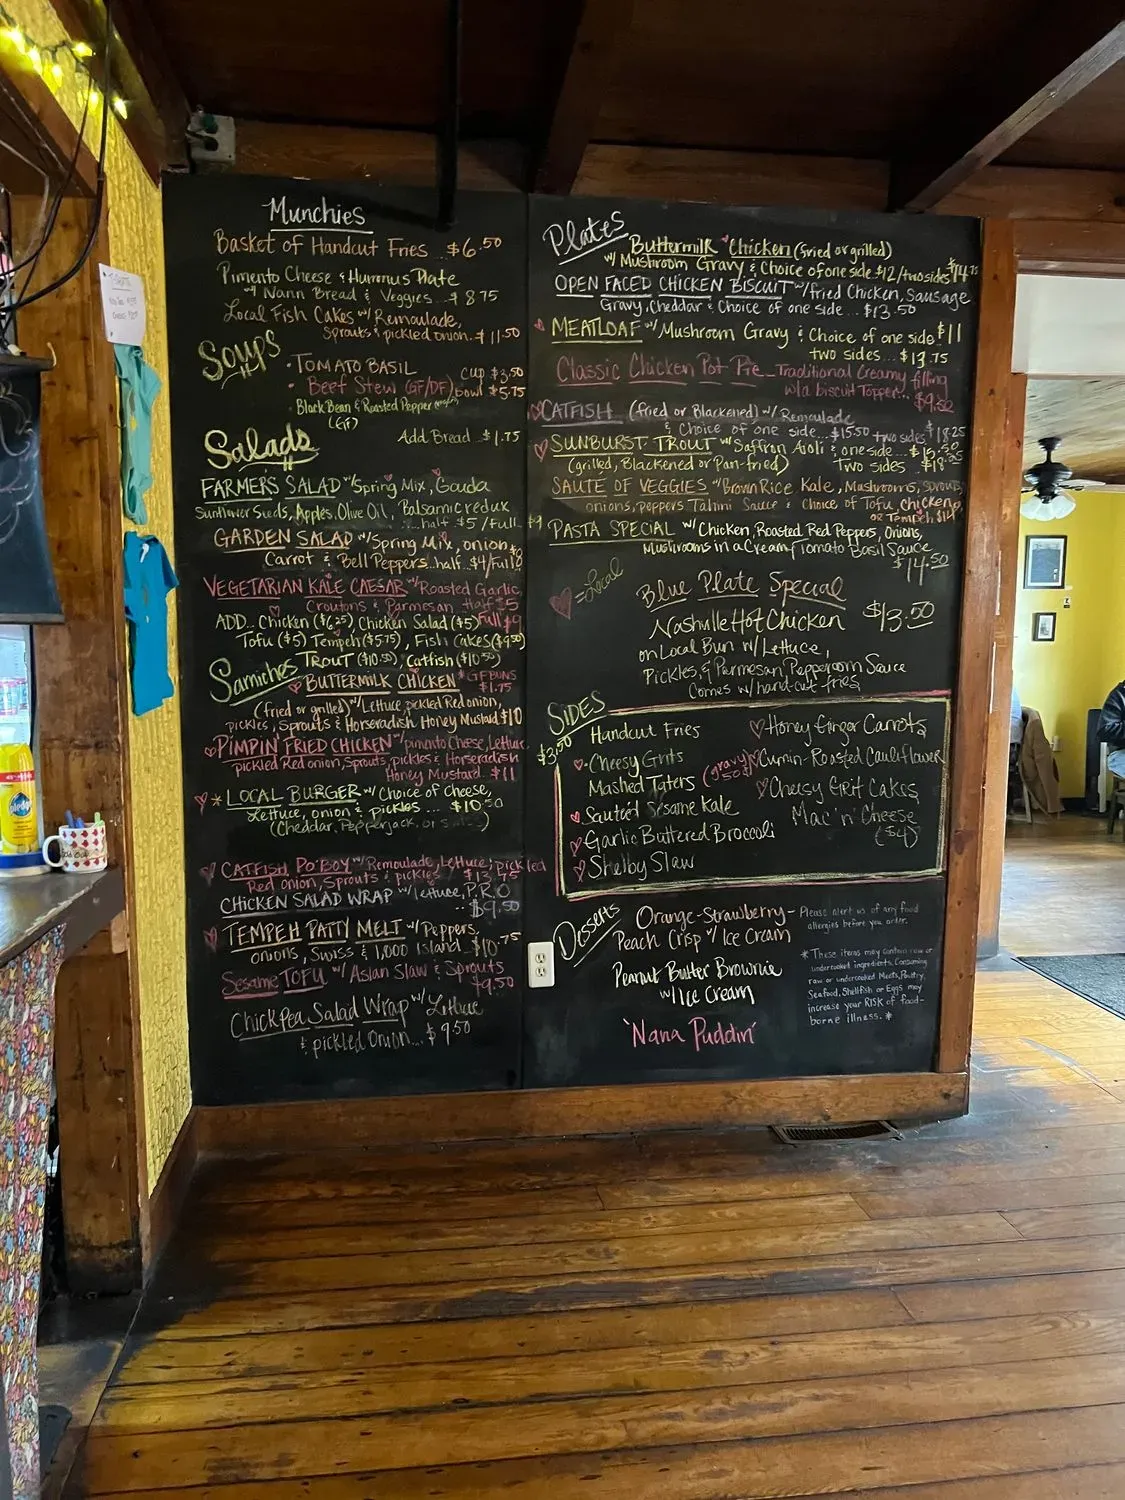 Munchies
Basket of Handcut Fries.. $6.50
Pimento Cheese & Hummus Plate
w/ Nann Bread & Veggies... $8.75
Local Fish Cakes w/ Remoulade,
Sprouts & pickled onion.. $11.50
Soups
• TOMATO BASIL
• Beef Stew (GF/DF)
cup $3.50
bowl $5.75
• Black Bean & Roasted Pepper
(GF)
Add Bread.. $1.75
Salads
FARMERS SALAD w/ Spring Mix, Gouda
Sunflower Seeds, Apples, Olive Oil, Balsamic reduk
....half $5/Full $9
GARDEN SALAD w/ Spring Mix, onion
Carrot & Bell Peppers..half $4/Full $8
VEGETARIAN KALE CAESAR w/ Roasted Garlic,
Croutons & Parmesan Half $5
Full $9
ADD.. Chicken ($6.25) Chicken Salad ($5)
Tofu ($5) Tempeh ($5.75), Fish Cakes ($9.50)
TROUT ($10.50) Catfish ($10.50)
Samiches
BUTTERMILK CHICKEN
*GF BUNS $1.75
(fried or grilled) w/ Lettuce, pickled Red onion,
pickles, Sprouts & Horseradish Honey Mustard $10
PIMPIN' FRIED CHICKEN w/ pimento Cheese, Lettuce
pickled Red onion, Sprouts, pickles & Horseradish
Honey Mustard.. $11
* LOCAL BURGER w/ Choice of Cheese,
Lettuce, onion & pickles ... $10.50
(Cheddar, Pepperjack, or Swiss)
CATFISH PO'BOY w/ Remoulade, Lettuce, pickled
Red onion, Sprouts & pickles $13.75
CHICKEN SALAD WRAP w/ lettuce, P.R.O
.. $9.50
TEMPEH PATTY MELT w/ Peppers,
onions, Swiss & 1,000 Island.. $10.75
Sesame TOFU w/ Asian Slaw & Sprouts
$9.50
ChickPea Salad Wrap w/ Lettuce
& pickled Onion... $9.50
Plates
Buttermilk Chicken (fried or grilled)
w/ Mushroom Gravy & Choice of one side.$12/two sides $14.75
OPEN FACED CHICKEN BISCUIT w/ fried Chicken, Sausage
Gravy, Cheddar & Choice of one side... $13.50
MEATLOAF w/ Mushroom Gravy & Choice of one side $11
two sides... $13.75
Classic Chicken Pot Pie_Traditional Creamy filling
w/a biscuit Topper..
$9.50
CATFISH (fried or Blackened) w/ Remoulade
& Choice of one side...$15.50 two sides $18.25
SUNBURST TROUT w/ Saffron Aioli & one side... $15.50
(grilled, Blackened or Pan-fried) Two sides $18.25
SAUTE OF VEGGIES w/ Brown Rice Kale, Mushrooms, sprouts,
onions, peppers Tahini Sauce & choice of Tofu, chicken,
or Tempeh $14
PASTA SPECIAL w/ Chicken, Roasted Red Peppers, Onions,
Mushrooms in a Cream Tomato Basil Sauce
$14.50
= Local
Blue Plate Special
Nashville Hot Chicken $13.50
on Local Bun w/ Lettuce,
Pickles, & Parmesan Peppercorn Sauce
Comes w/ hand-cut fries
SIDES
$3.50
Handcut Fries
Cheesy Grits
Mashed Taters (gravy .50¢)
Sauteed Sesame Kale
Garlic Buttered Broccoli
Shelby Slaw
Honey Ginger Carrots
Cumin-Roasted Cauliflower
Cheesy Grit Cakes
Mac 'n' Cheese
($4)
Desserts
Orange-Strawberry-
Peach Crisp w/ Ice Cream
Peanut Butter Brownie
w/ Ice Cream
'Nana Puddin'
Please alert us of any food
allergies before you order.
* These items may contain raw or
undercooked ingredients. Consuming
raw or undercooked Meats, Poultry,
Seafood, Shellfish or Eggs may
increase your RISK of food-
borne illness. *